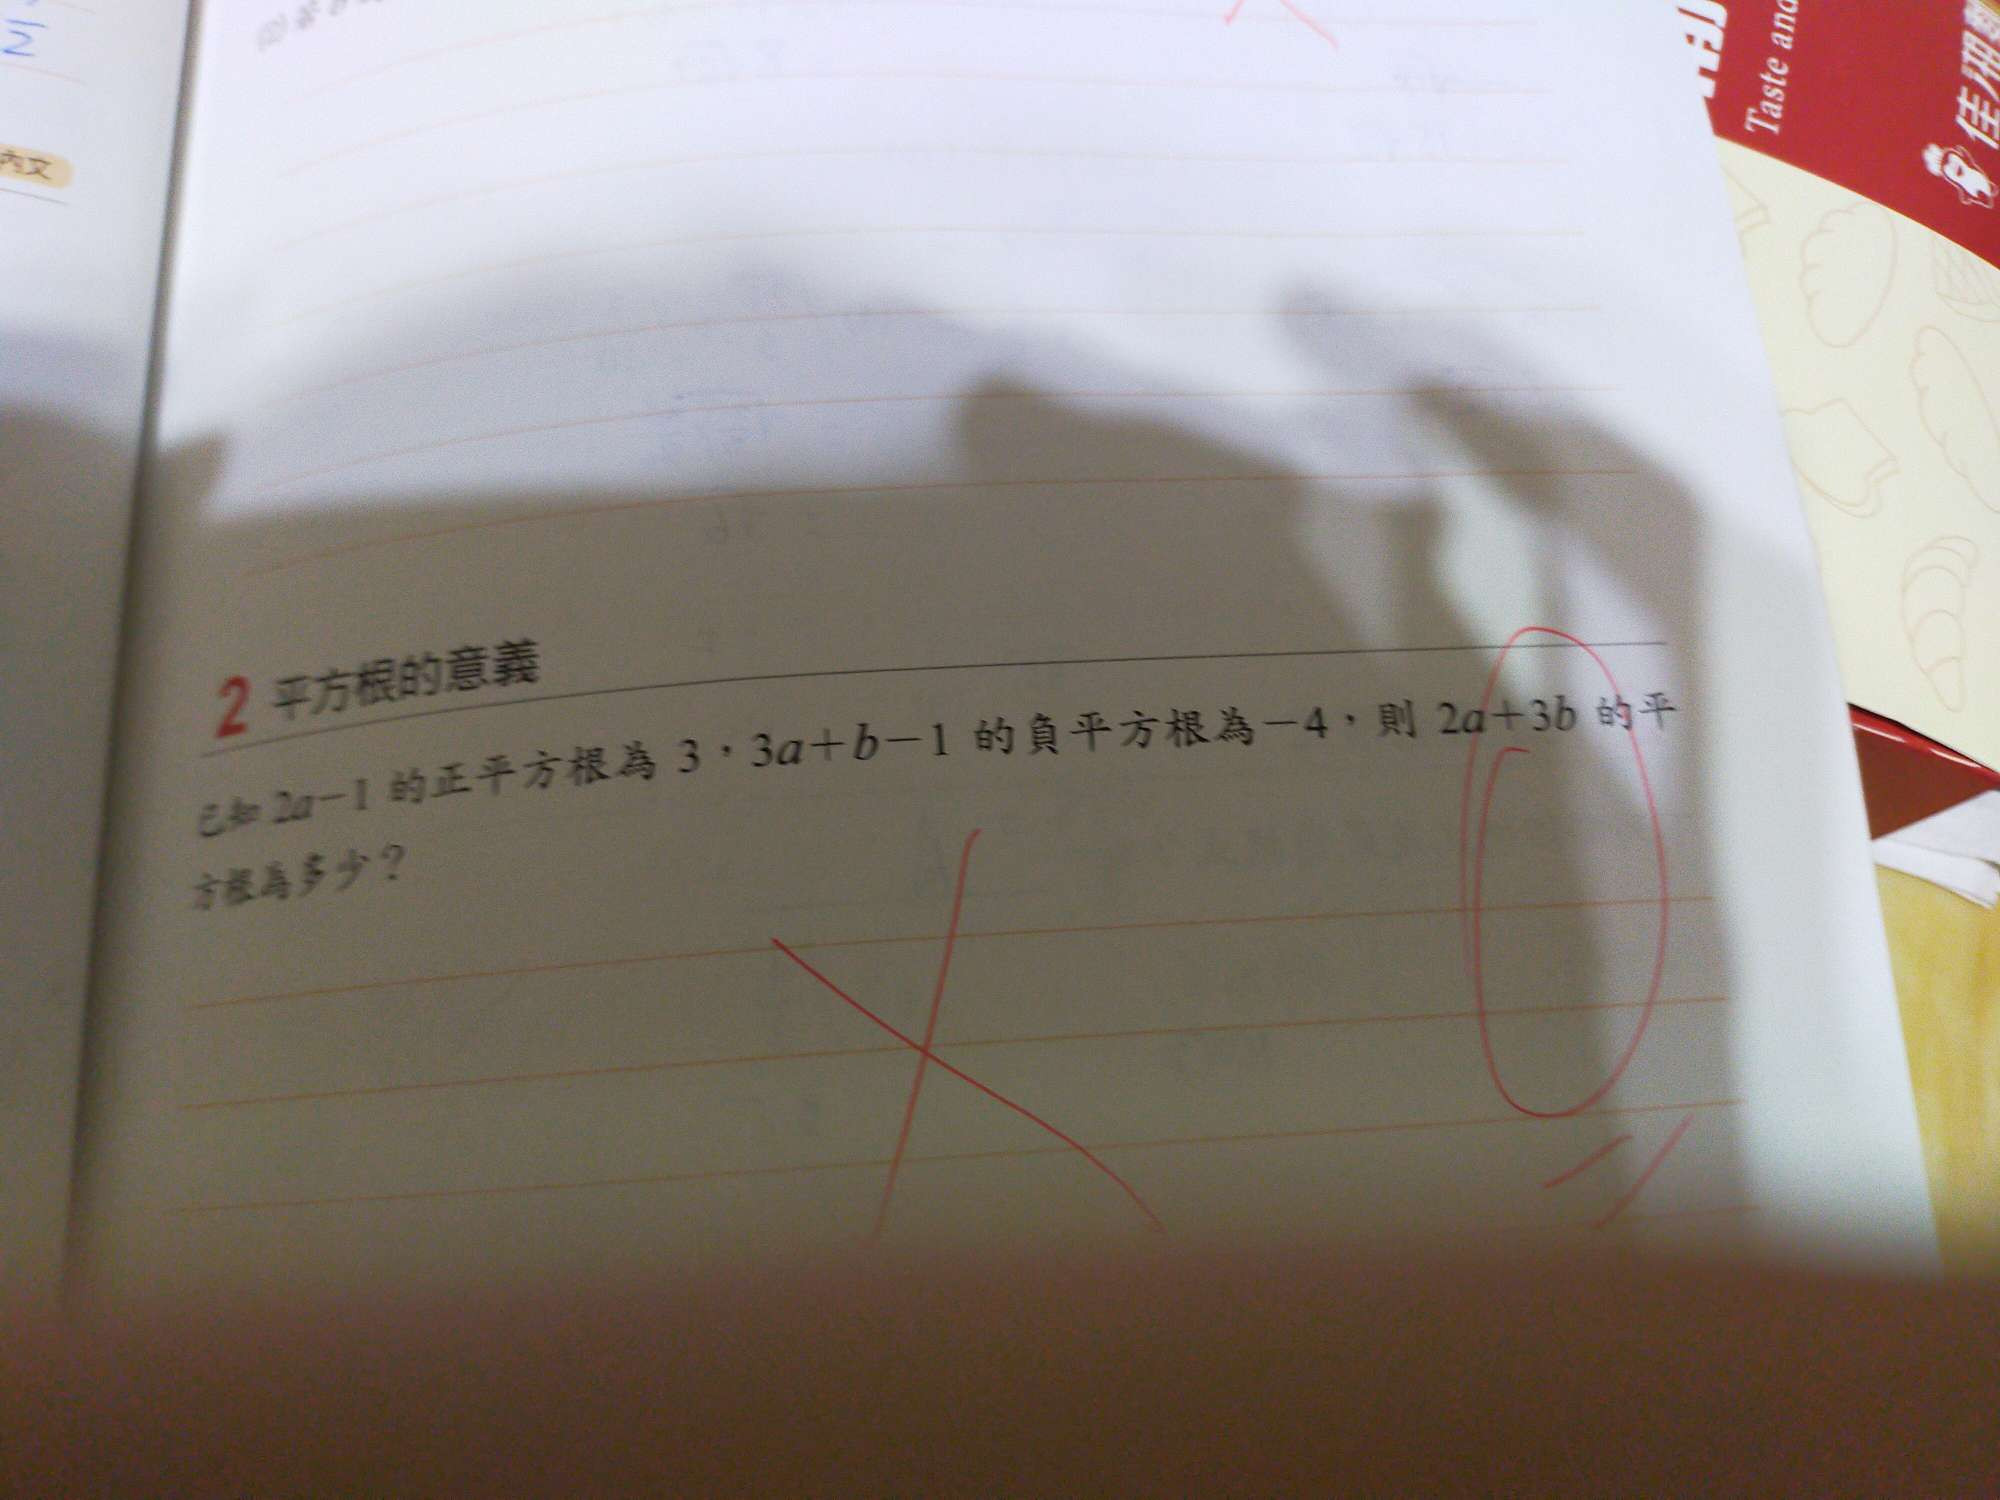 內文
Taste and
佳湘
2 平方根的意義
已知 2a－1 的正平方根為 3，3a＋b－1 的負平方根為－4，則 2a＋3b 的平
方根為多少？